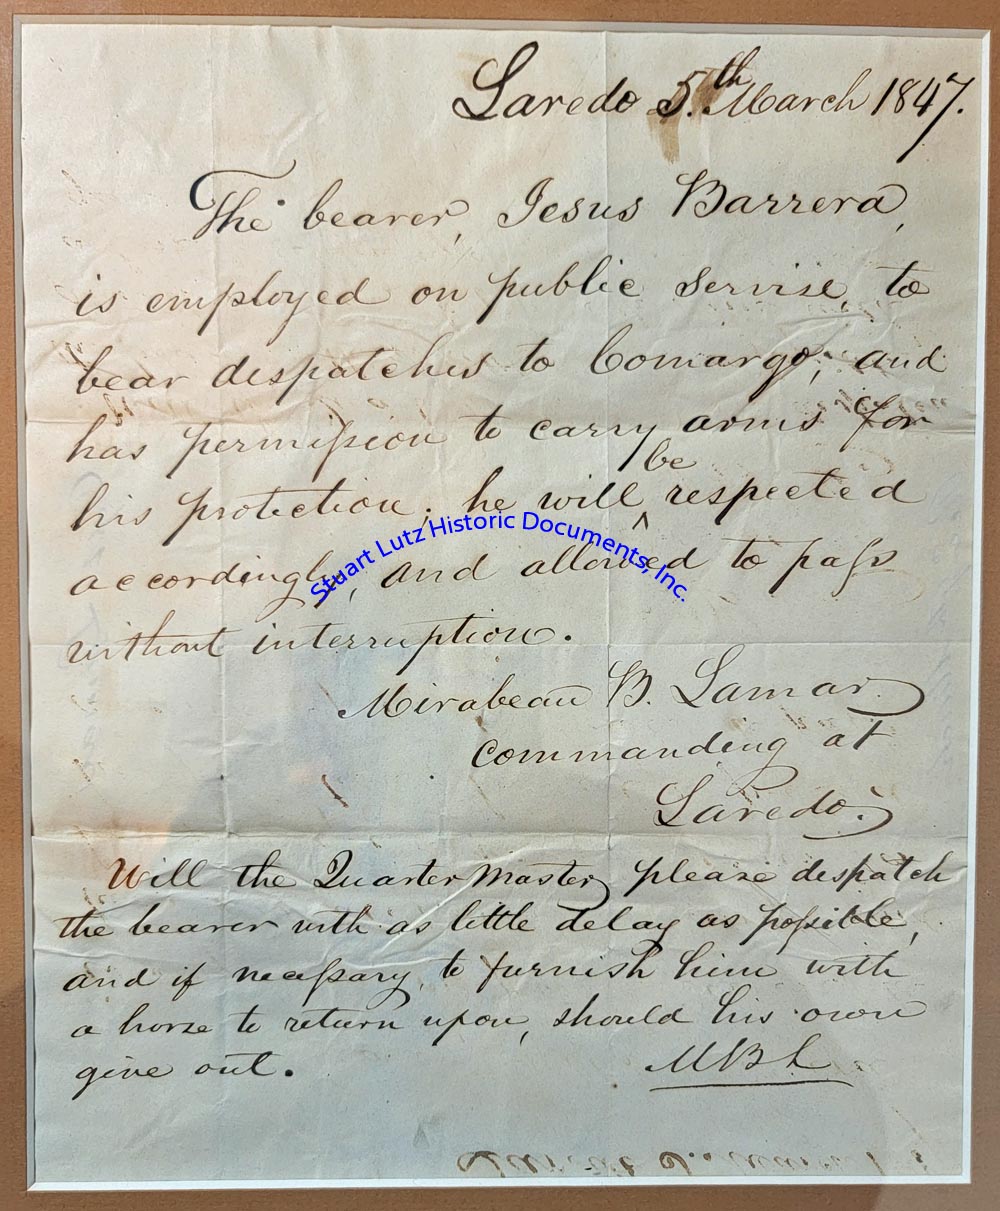 Laredo 5.th March 1847.
The bearer, Jesus Barrera,
is employed on public servise, to
bear despatches to Comargo; and
has permission to carry arms for
be
his protection; he will ^ respected
accordingly, and allowed to pass
without interruption.
Mirabeau B. Lamar
commanding at
Laredo.
Will the Quarter Master please despatch
the bearer with as little delay as possible,
and if necessary, to furnish him with
a horse to return upon, should his own
give out.
MBL
Stuart Lutz Historic Documents, Inc.